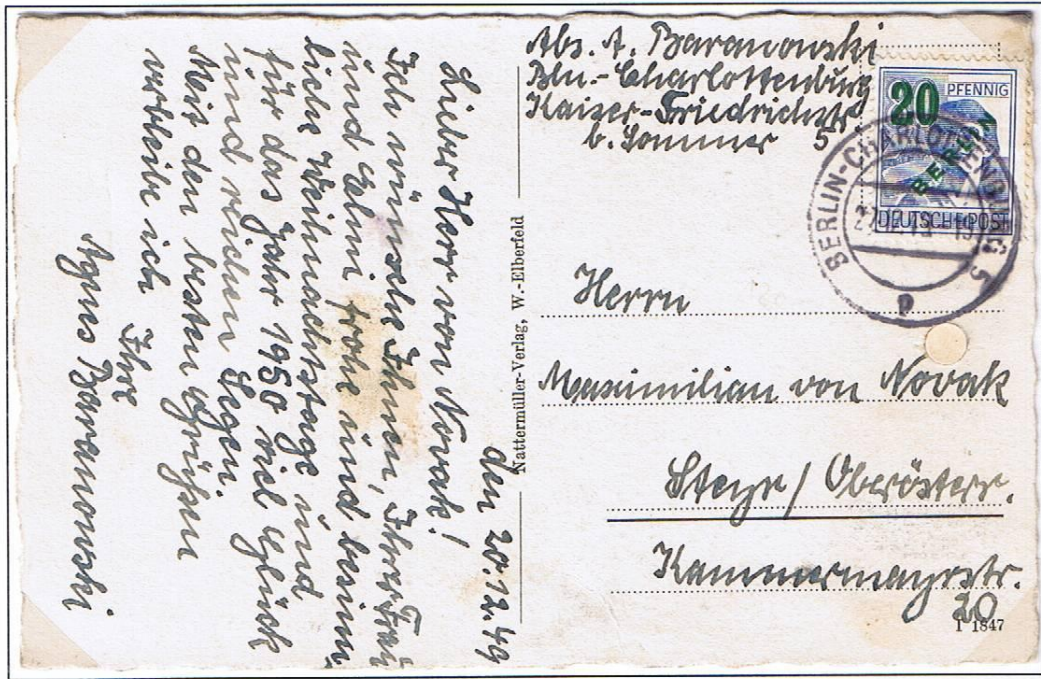 Abs. A. Baranowski
Bln.-Charlottenburg
Kaiser-Friedrichstr.
b. Sommer 5
20 PFENNIG
BERLIN
DEUTSCHE POST
BERLIN-CHARLOTTENBURG 5
p
Herrn
Maximilian von Novak
Steyr / Oberösterr.
Kammermayrstr.
20
I 1847
Nattermüller-Verlag, W.-Elberfeld
den 20.12.49
Lieber Herr von Novak!
Ich wünsche Ihnen, Ihrer Frau
und Edmi frohe und besinn-
liche Weihnachtstage und
für das Jahr 1950 viel Glück
und reichen Segen.
Mit den besten Grüßen
verbleibe ich
Ihre
Agnes Baranowski